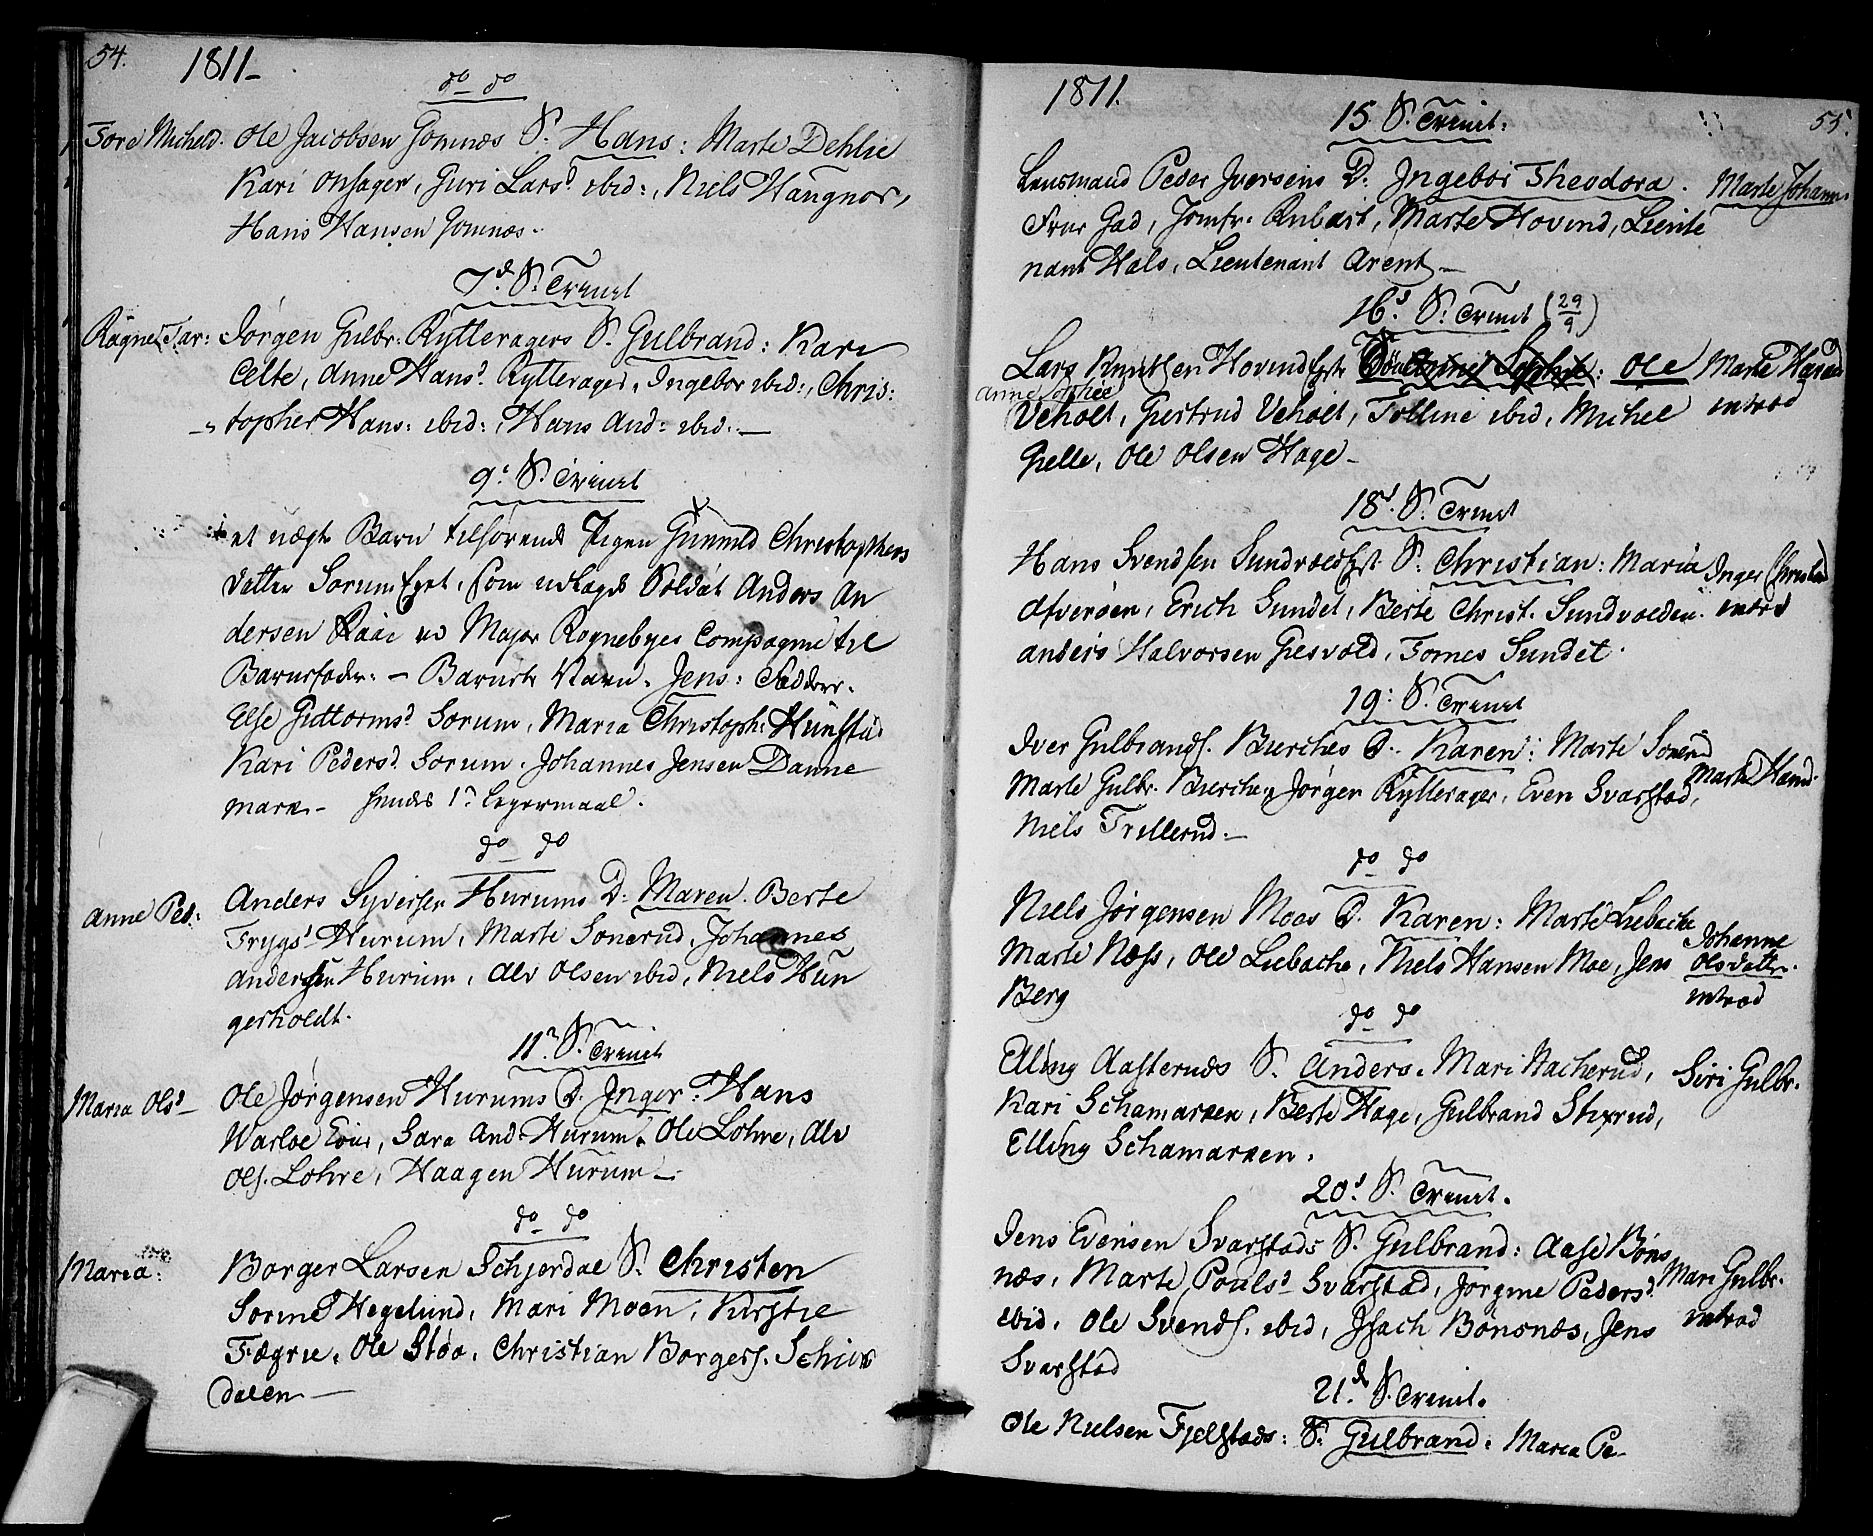 54.
1811-
do do
Tore Micheld. Ole Jacobsen Gomnæs S. Hans: Marte Dehlie
Kari Onsager, Guri Larsd. ibid:, Niels Haugnor,
Hans Hansen Gomnæs.
7d S. Trinit
Ragne Tar: Jørgen Gulbr: Rytteragers S. Gulbrand: Kari
Celte, Anne Hansd. Rytterager, Ingebor ibid:, Chris:
topher Hans: ibid:, Hans And: ibid.
9: S. Trinit
et uægte Barn tilhørende Pigen Gunnild Christophers
datter Sorum Eyet, som udlagde Soldat Anders An
dersen Raae ved Major Rognebyes Compagnie til
Barnefader. - Barnets Navn. Jens: Faddere.
Else Guttormsd. Sorum, Maria Christoph: Hunsta
Kari Pedersd. Sorum. Johannes Jensen Danne
mark - hendes 1ste Leyermaal.
do do
Anne Ped: Anders Syversen Hurums D. Maren. Berte
Trygsd Hurum, Marte Sonerud, Johannes
Andersen Hurum, Alv Olsen ibid, Niels Hun
gerholdt.
11te S. Trinit
Maria Olsd- Ole Jørgensen Hurums D. Inger: Hans
Warloe, Sara And. Hurum. Ole Lohre, Alv
Ols. Lohre, Haagen Hurum -
do do
Maria: Borger Larsen Schjerdal S. Christen
Hegelund, Mari Moen, Kirstie
Fægrie, Ole Støa, Christian Borgers. Schier
dalen -
1811.
55.
15 S. Trinit:
Lensmand Peder Iversens D. Ingebor Theodora. Marte Johann
Frue Gad, Jomfr. Rubart, Marte Hovind, Lieute
nant Hals, Lieutenant Arent -
16d S. Trinit (29/9)
Lars Knutsen Hovind Eyets Sophie: Ole Marte Harald
Anne Sophie
Veholt, Giertrud Veholt, Tolline ibid, Michel introd
Gielle, Ole Olsen Hage -
18d S. Trinit
Hans Svendsen Sundvold Ejet S. Christian: Maria Inger Christend
Afverøen, Erich Sundet, Berte Christ. Sundvolden. introd
Anders Halvorsen Giesvold, Tomes Sundet.
19: S. Trinit
Iver Gulbrands. Buerches D. Karen: Marte Sonerud Marte Hansd.
Marte Gulbr. Buerchen, Jørgen Rytterager, Even Svarstad,
Niels Trillerud. -
do do
Niels Jørgensen Moas D. Karen: Marte Liebache Johanne
Marte Næss, Ole Liebache, Niels Hansen Moe, Jens Olsdatter.
Berg introd
do do
Elling Aasternds S. Anders. Mari Nacherud, Siri Gulbr.
Kari Schamarken, Berte Hage, Gulbrand Stixrud,
Elling Schamarken.
20d S. Trinit.
Jens Evensen Svarstads S. Gulbrand: Aase Bøns
næs, Marte Poulsd Svarstad, Jørgine Pedersd Mari Gulbr.
ibid, Ole Svends. ibid, Isach Bønsnæs, Jens introd
Svarstad
21de S. Trinit.
Ole Nielsen Fjelstads: S. Gulbrand: Maria Pe-